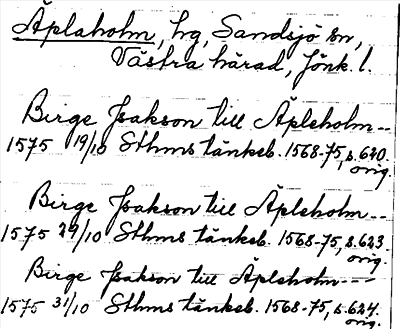 Äplaholm, hg, Sandsjö sn,
Västra härad, Jönk. l.
Birge Isakson till Äpleholm --
1575 19/10 Sthms tänkeb. 1568-75, s. 620.
orig.
Birge Isakson till Äpleholm --
1575 29/10 Sthms tänkeb. 1568-75, s. 623.
orig.
Birge Isakson till Äpleholm ---
1575 31/10 Sthms tänkeb. 1568-75, s. 624.
orig.